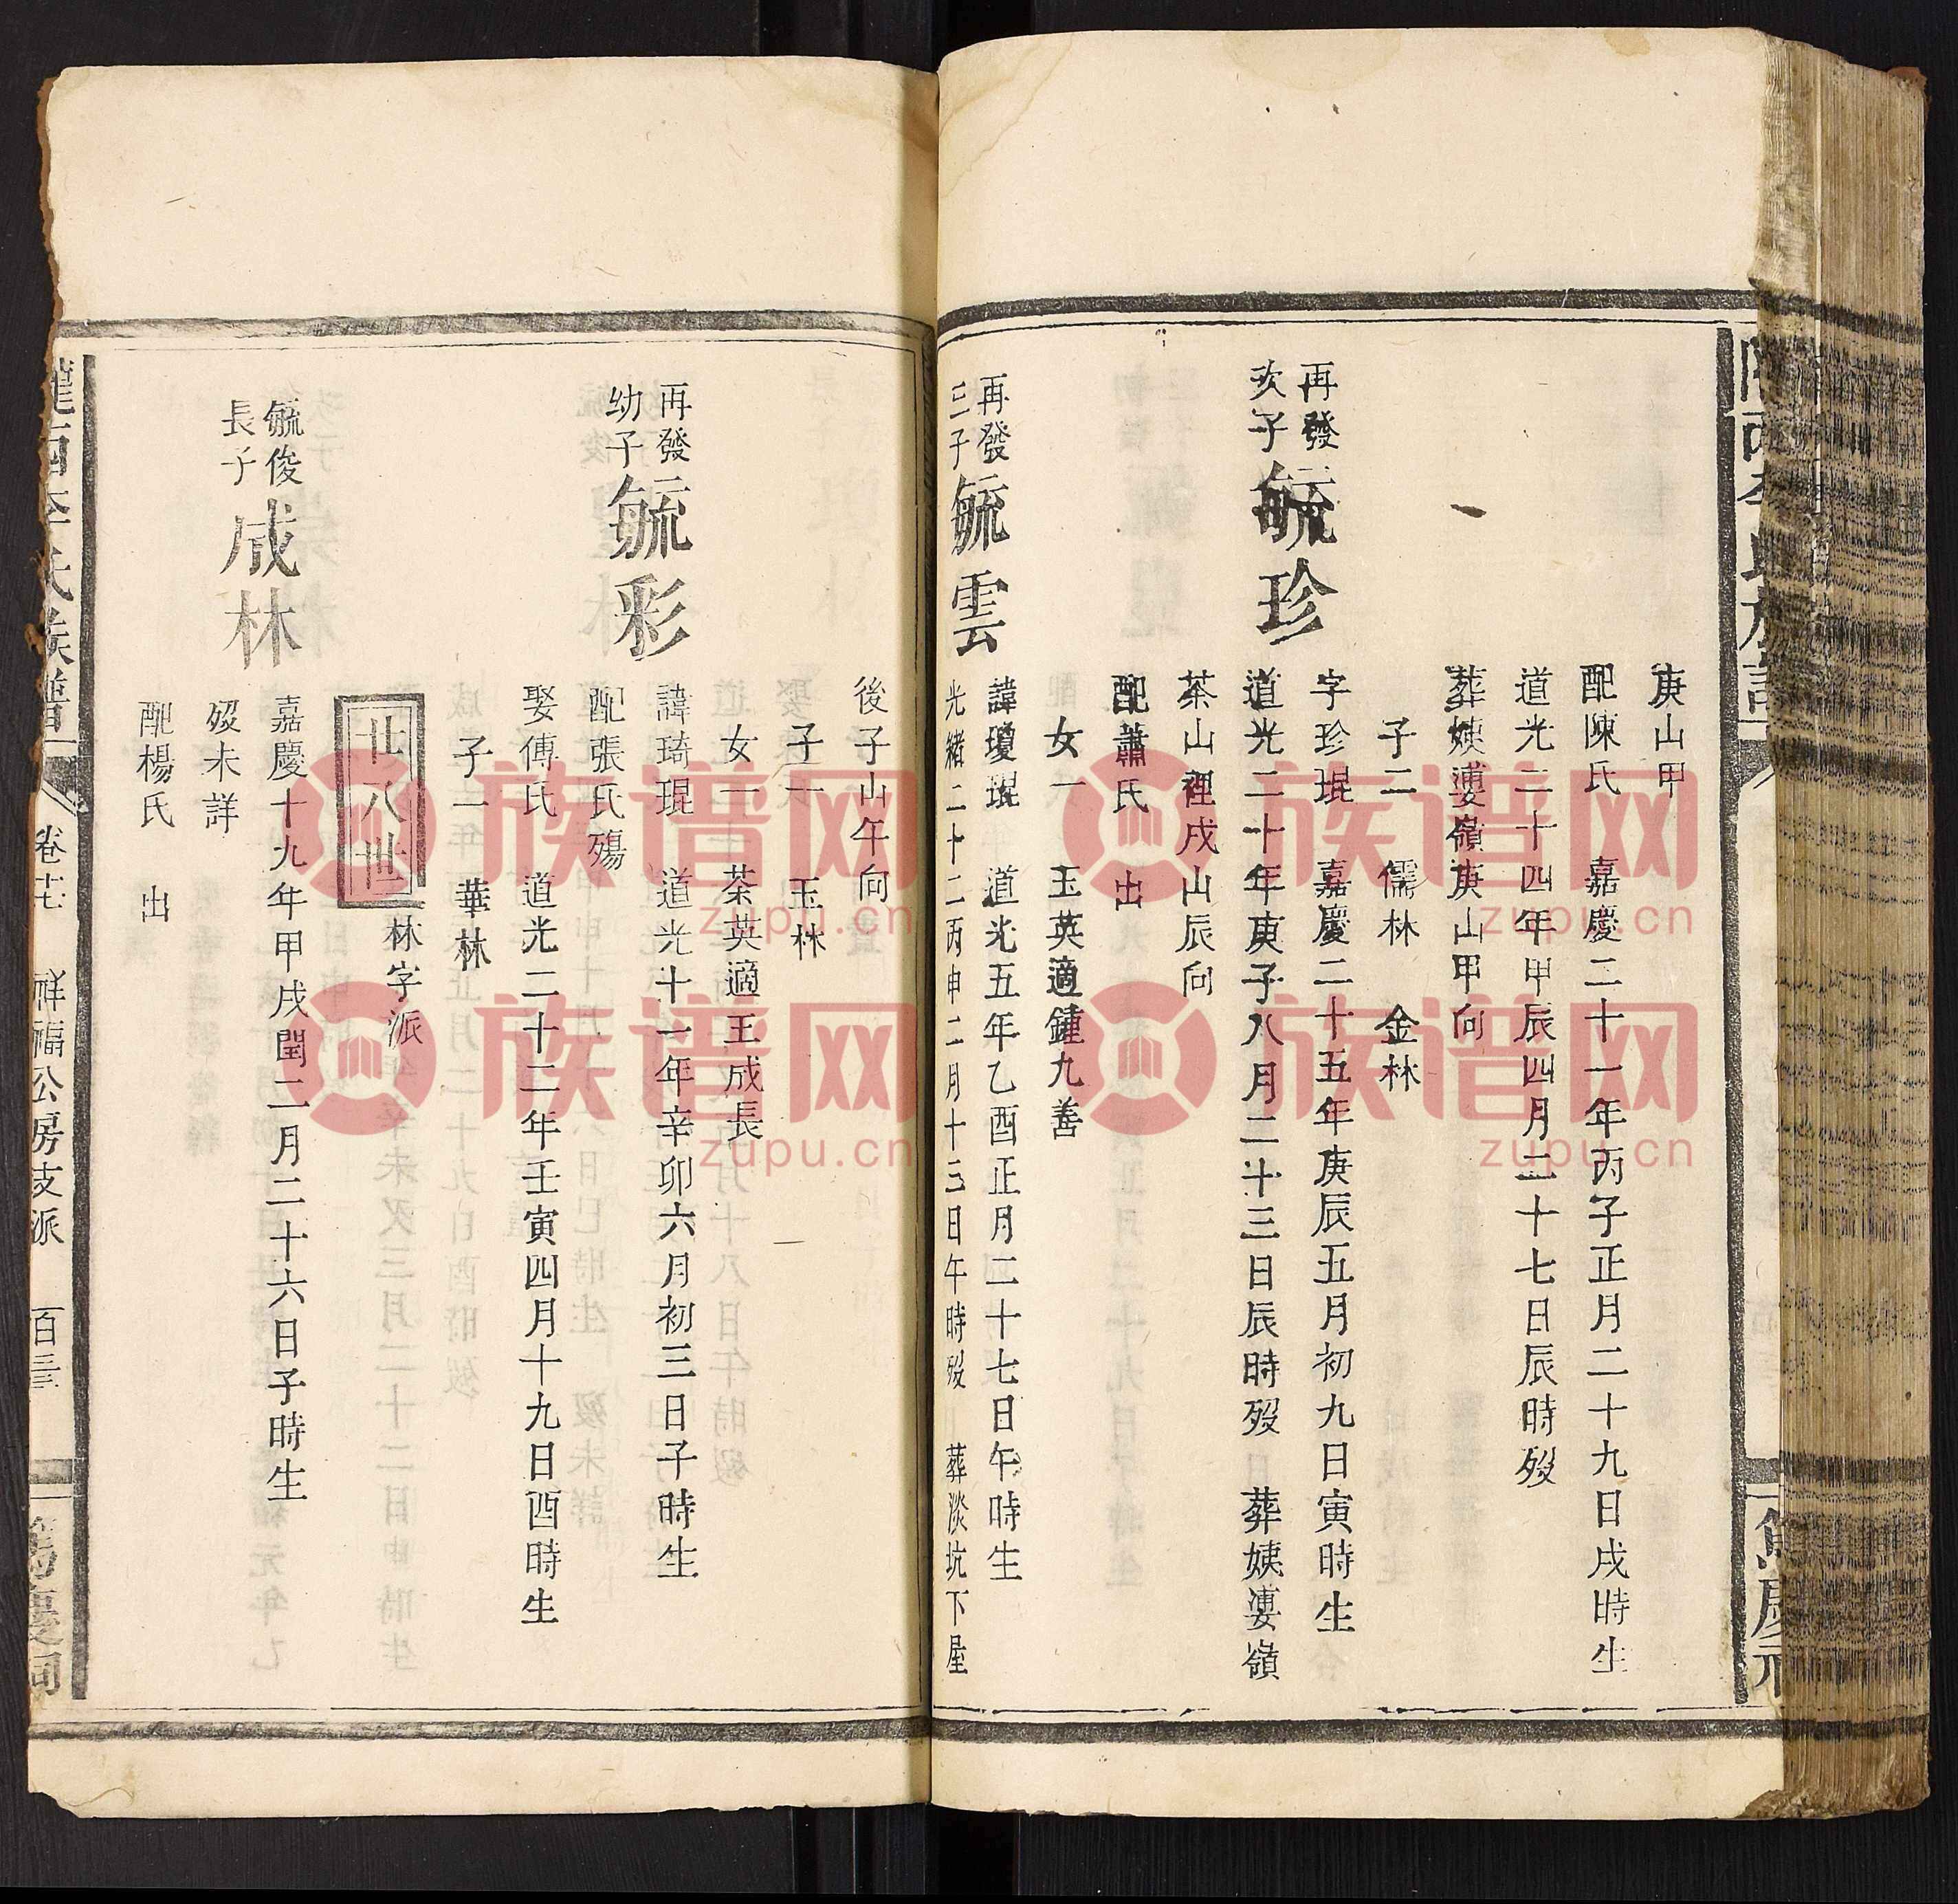 庚山甲
配陳氏 嘉慶二十一年丙子正月二十九日戌時生
道光二十四年甲辰四月二十七日辰時歿
葬姨婆嶺庚山甲向
子二 儒林 金林
再發
次子
毓珍
字珍琨 嘉慶二十五年庚辰五月初九日寅時生
道光二十年庚子八月二十三日辰時歿 葬姨婆嶺
茶山裡戌山辰向
配蕭氏 出
女一 玉英適鍾九善
再發
三子
毓雲
諱瓊琨 道光五年乙酉正月二十七日午時生
光緒二十二丙申二月十三日午時歿 葬淡坑下屋
後子山午向
子一 玉林
女一 茶英適王成長
再發
幼子
毓彩
諱琦琨 道光十一年辛卯六月初三日子時生
配張氏殤
娶傅氏 道光二十二年壬寅四月十九日酉時生
子一 華林
廿八世
林字派
毓俊
長子
成林
嘉慶十九年甲戌閏二月二十六日子時生
歿未詳
配楊氏 出
隴西李氏族譜
卷廿 祥福公房支派
篤慶祠
族谱网
zupu.cn
族谱网
zupu.cn
族谱网
zupu.cn
族谱网
zupu.cn